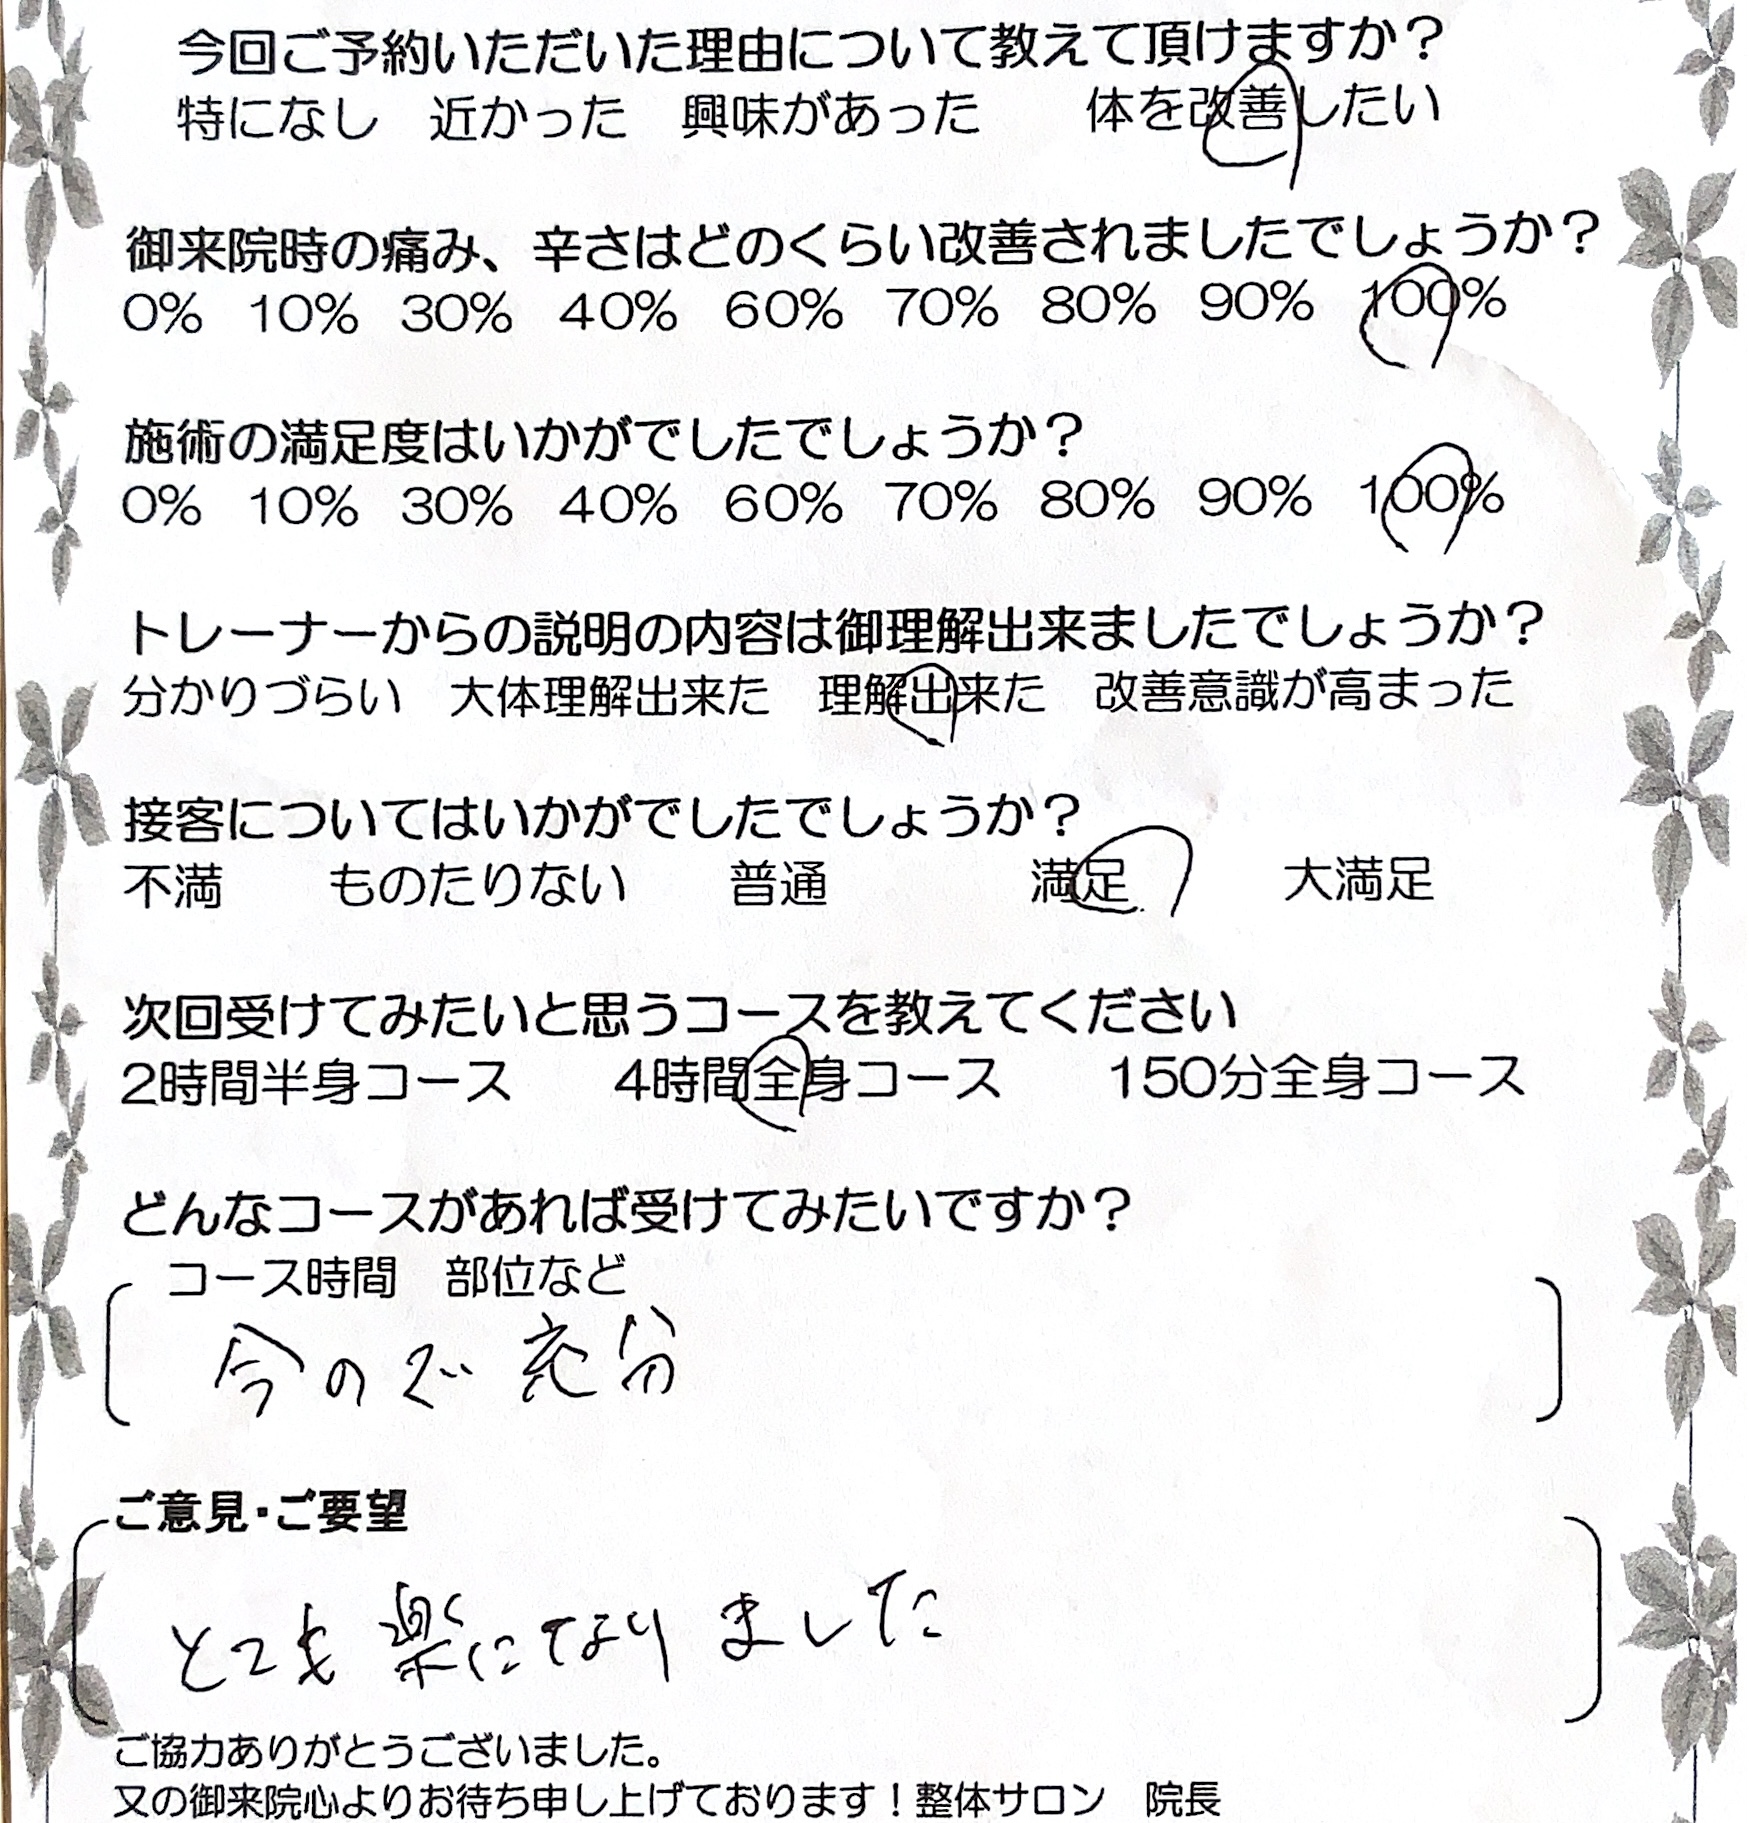 今回ご予約いただいた理由について教えて頂けますか？
特になし　近かった　興味があった　　体を改善したい
御来院時の痛み、辛さはどのくらい改善されましたでしょうか？
0%　10%　30%　40%　60%　70%　80%　90%　100%
施術の満足度はいかがでしたでしょうか？
0%　10%　30%　40%　60%　70%　80%　90%　100%
トレーナーからの説明の内容は御理解出来ましたでしょうか？
分かりづらい　大体理解出来た　理解出来た　改善意識が高まった
接客についてはいかがでしたでしょうか？
不満　　ものたりない　　普通　　　　満足　　　大満足
次回受けてみたいと思うコースを教えてください
2時間半身コース　　4時間全身コース　　150分全身コース
どんなコースがあれば受けてみたいですか？
コース時間　部位など
今ので充分
ご意見・ご要望
とても楽になりました
ご協力ありがとうございました。
又の御来院心よりお待ち申し上げております！整体サロン　院長